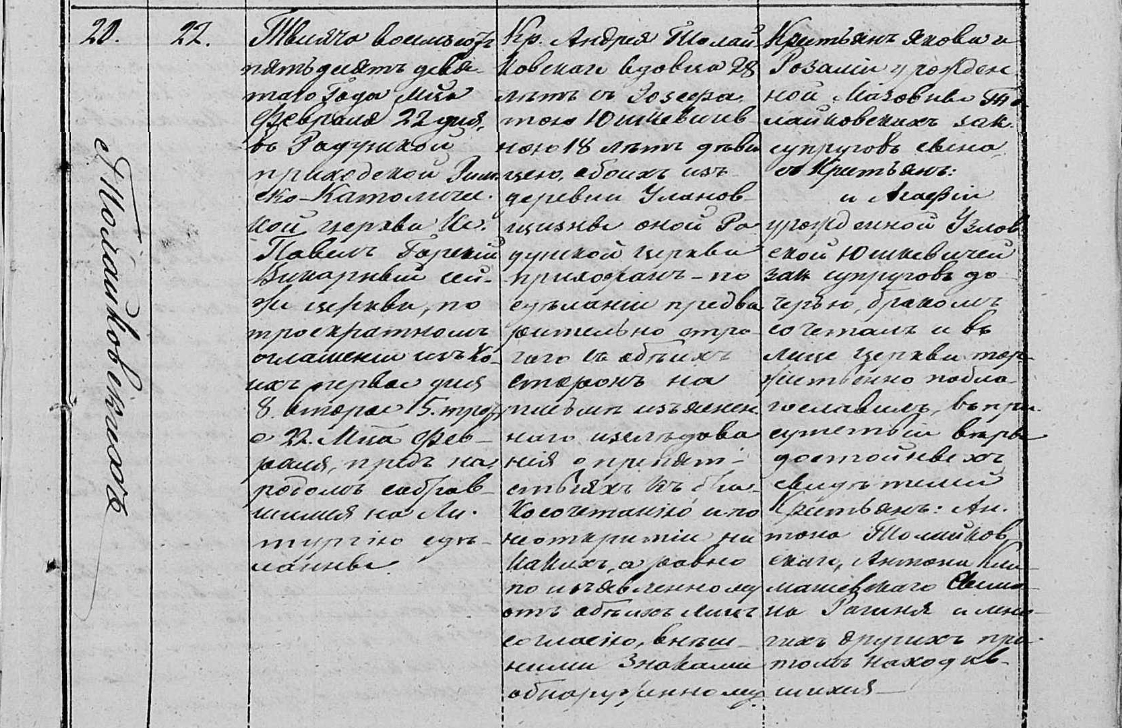 20.
22.
Толайковскихъ
Тысяча восемьсотъ
пятьдесятъ девя-
таго Года М-ца
Февраля 22 дня,
въ Радунской
приходской Рим-
ско-Католиче-
кой церкви Кс.
Павелъ Горский
Викарный сей-
же церкви, по
троекратномъ
оглашении изъ ко-
ихъ первое дня
8. второе 15. трет
е 22. М-ца Фев-
раля, предъ на
родомъ собрав-
шимся на Ли-
тургию сдѣ-
ланные
Кр. Андрея Толай
ковскаго вдовца 28
лѣтъ съ Іозефа
тою Юшкевичев
ною 18 лѣтъ дѣви
цею, обоихъ изъ
деревни Уланов-
щизны оной Ра
дунской церкви
прихожан- по
сдѣлании предва
рительно стро
гаго съ обѣихъ
сторонъ на
письмѣ изъяснен
наго изслѣдова
нія о препят-
ствіяхъ къ бра-
косочетанію и по
неоткрытіи ни
какихъ, а равно
по изъявленному
отъ обѣихъ лицъ
согласію, внѣш-
ними знаками
обнаруженному
Крестьянъ Якова и
Розаліи урожден
ной Мазовны То
лайковскихъ зак.
супруговъ сына,
съ Крестьянъ:
и Агафіи
урожденной Узлов
ской Юшкевичей
зак супруговъ до
черью, бракомъ
сочеталъ и въ
лице церкви тор-
жественно побла-
гословилъ, въ при-
сутствіи вѣры
достойныхъ
свидѣтелей
Крестьянъ: Ан-
тона Толайков
скаго, Антона Кли
машевскаго
на Рагиня и мно-
гихъ другихъ при
томъ находив-
шихся